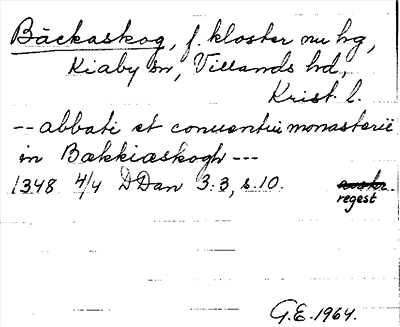 Bäckaskog, f. kloster nu hg,
Kiaby sn, Villands hd,
Krist. l.
-- abbati et conuentui monasterii
in Bækkiæskogh ---
1348 4/4 DDan 3:3, s. 10. avskr.
regest
G.E. 1964.